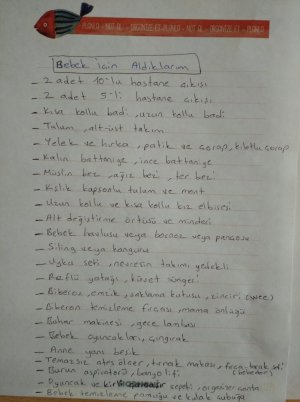 PLANLA - NOT AL - ORGANİZE ET - PLANLA - NOT AL - ORGANİZE ET - PLANLA
Bebek için Aldıklarım
_ 2 adet 10'lu hastane çıkışı
_ 2 adet 5'li hastane çıkışı
_ Kısa kollu badi, uzun kollu badi
_ Tulum, alt-üst takım
_ Yelek ve hırka, patik ve çorap, külotlu çorap
_ Kalın battaniye, ince battaniye
_ Müslin bez, ağız bezi, ter bezi
_ Kışlık kapşonlu tulum ve mont
_ Uzun kollu ve kısa kollu kız elbisesi
_ Alt değiştirme örtüsü ve minderi
_ Bebek havlusu veya bornoz veya panço
_ Siling veya kanguru
_ Uyku seti, nevresim takımı yedekli
_ Reflü yatağı, küvet süngeri
_ Biberon, emzik, saklama kutusu, zinciri (wee)
_ Biberon temizleme fırçası, mama önlüğü
_ Buhar makinesi, gece lambası
_ Bebek oyuncakları, çıngırak
_ Anne yanı beşik
_ Temassız ateş ölçer, tırnak makası, fırça-tarak seti
_ Burun aspiratörü, banyo lifi (bebedor)
_ Oyuncak ve kirli sepeti, organizer çanta
_ Bebek temizleme pamuğu ve kulak çubuğu